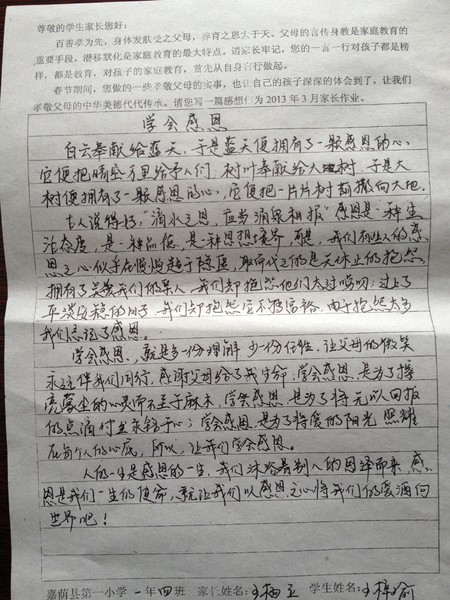 尊敬的学生家长您好：
百善孝为先，身体发肤受之父母，养育之恩大于天。父母的言传身教是家庭教育的
重要手段，潜移默化是家庭教育的最大特点。请家长牢记，您的一言一行对孩子都是榜
样，都是教育，对孩子的家庭教育，首先从自身言行做起。
春节期间，您做的一些孝敬父母的实事，也让自己的孩子深深的体会到了，让我们
孝敬父母的中华美德代代传承。请您写一篇感想作为 2013 年 3 月家长作业。
学会感恩
白云奉献给蓝天，于是蓝天便拥有了一颗感恩的心，
它便把晴空万里给予人们，树叶奉献给大树，于是大
树便拥有了一颗感恩的心，它便把一片片树荫撒向大地。
古人说得好，"滴水之恩，应当涌泉相报"感恩是一种生
活态度，是一种品德，是一种思想境界，可是，我们有些人的感
恩之心似乎在慢慢趋于隐匿，取而代之的是无休止的抱怨，
拥有了关爱我们的亲人，我们却抱怨他们太过唠叨；过上了
平淡安稳的日子，我们却抱怨它不够富裕，由于抱怨太多
我们忘记了感恩。
学会感恩，就是多一份理解，少一份任性，让父母的微笑
永远伴我们同行，感谢父母给了我生命，学会感恩，是为了擦
亮蒙尘的心灵而不至于麻木，学会感恩，是为了将无以回报
的点滴付出永铭于心；学会感恩，是为了将爱的阳光照耀
在每个人的心底，所以，让我们学会感恩。
人的一生是感恩的一生，我们沐浴着别人的恩泽而来，感
恩是我们一生的使命，就让我们以感恩之心将我们的爱洒向
世界吧！
嘉荫县第一小学 一年四班 家长姓名：王 学生姓名：王